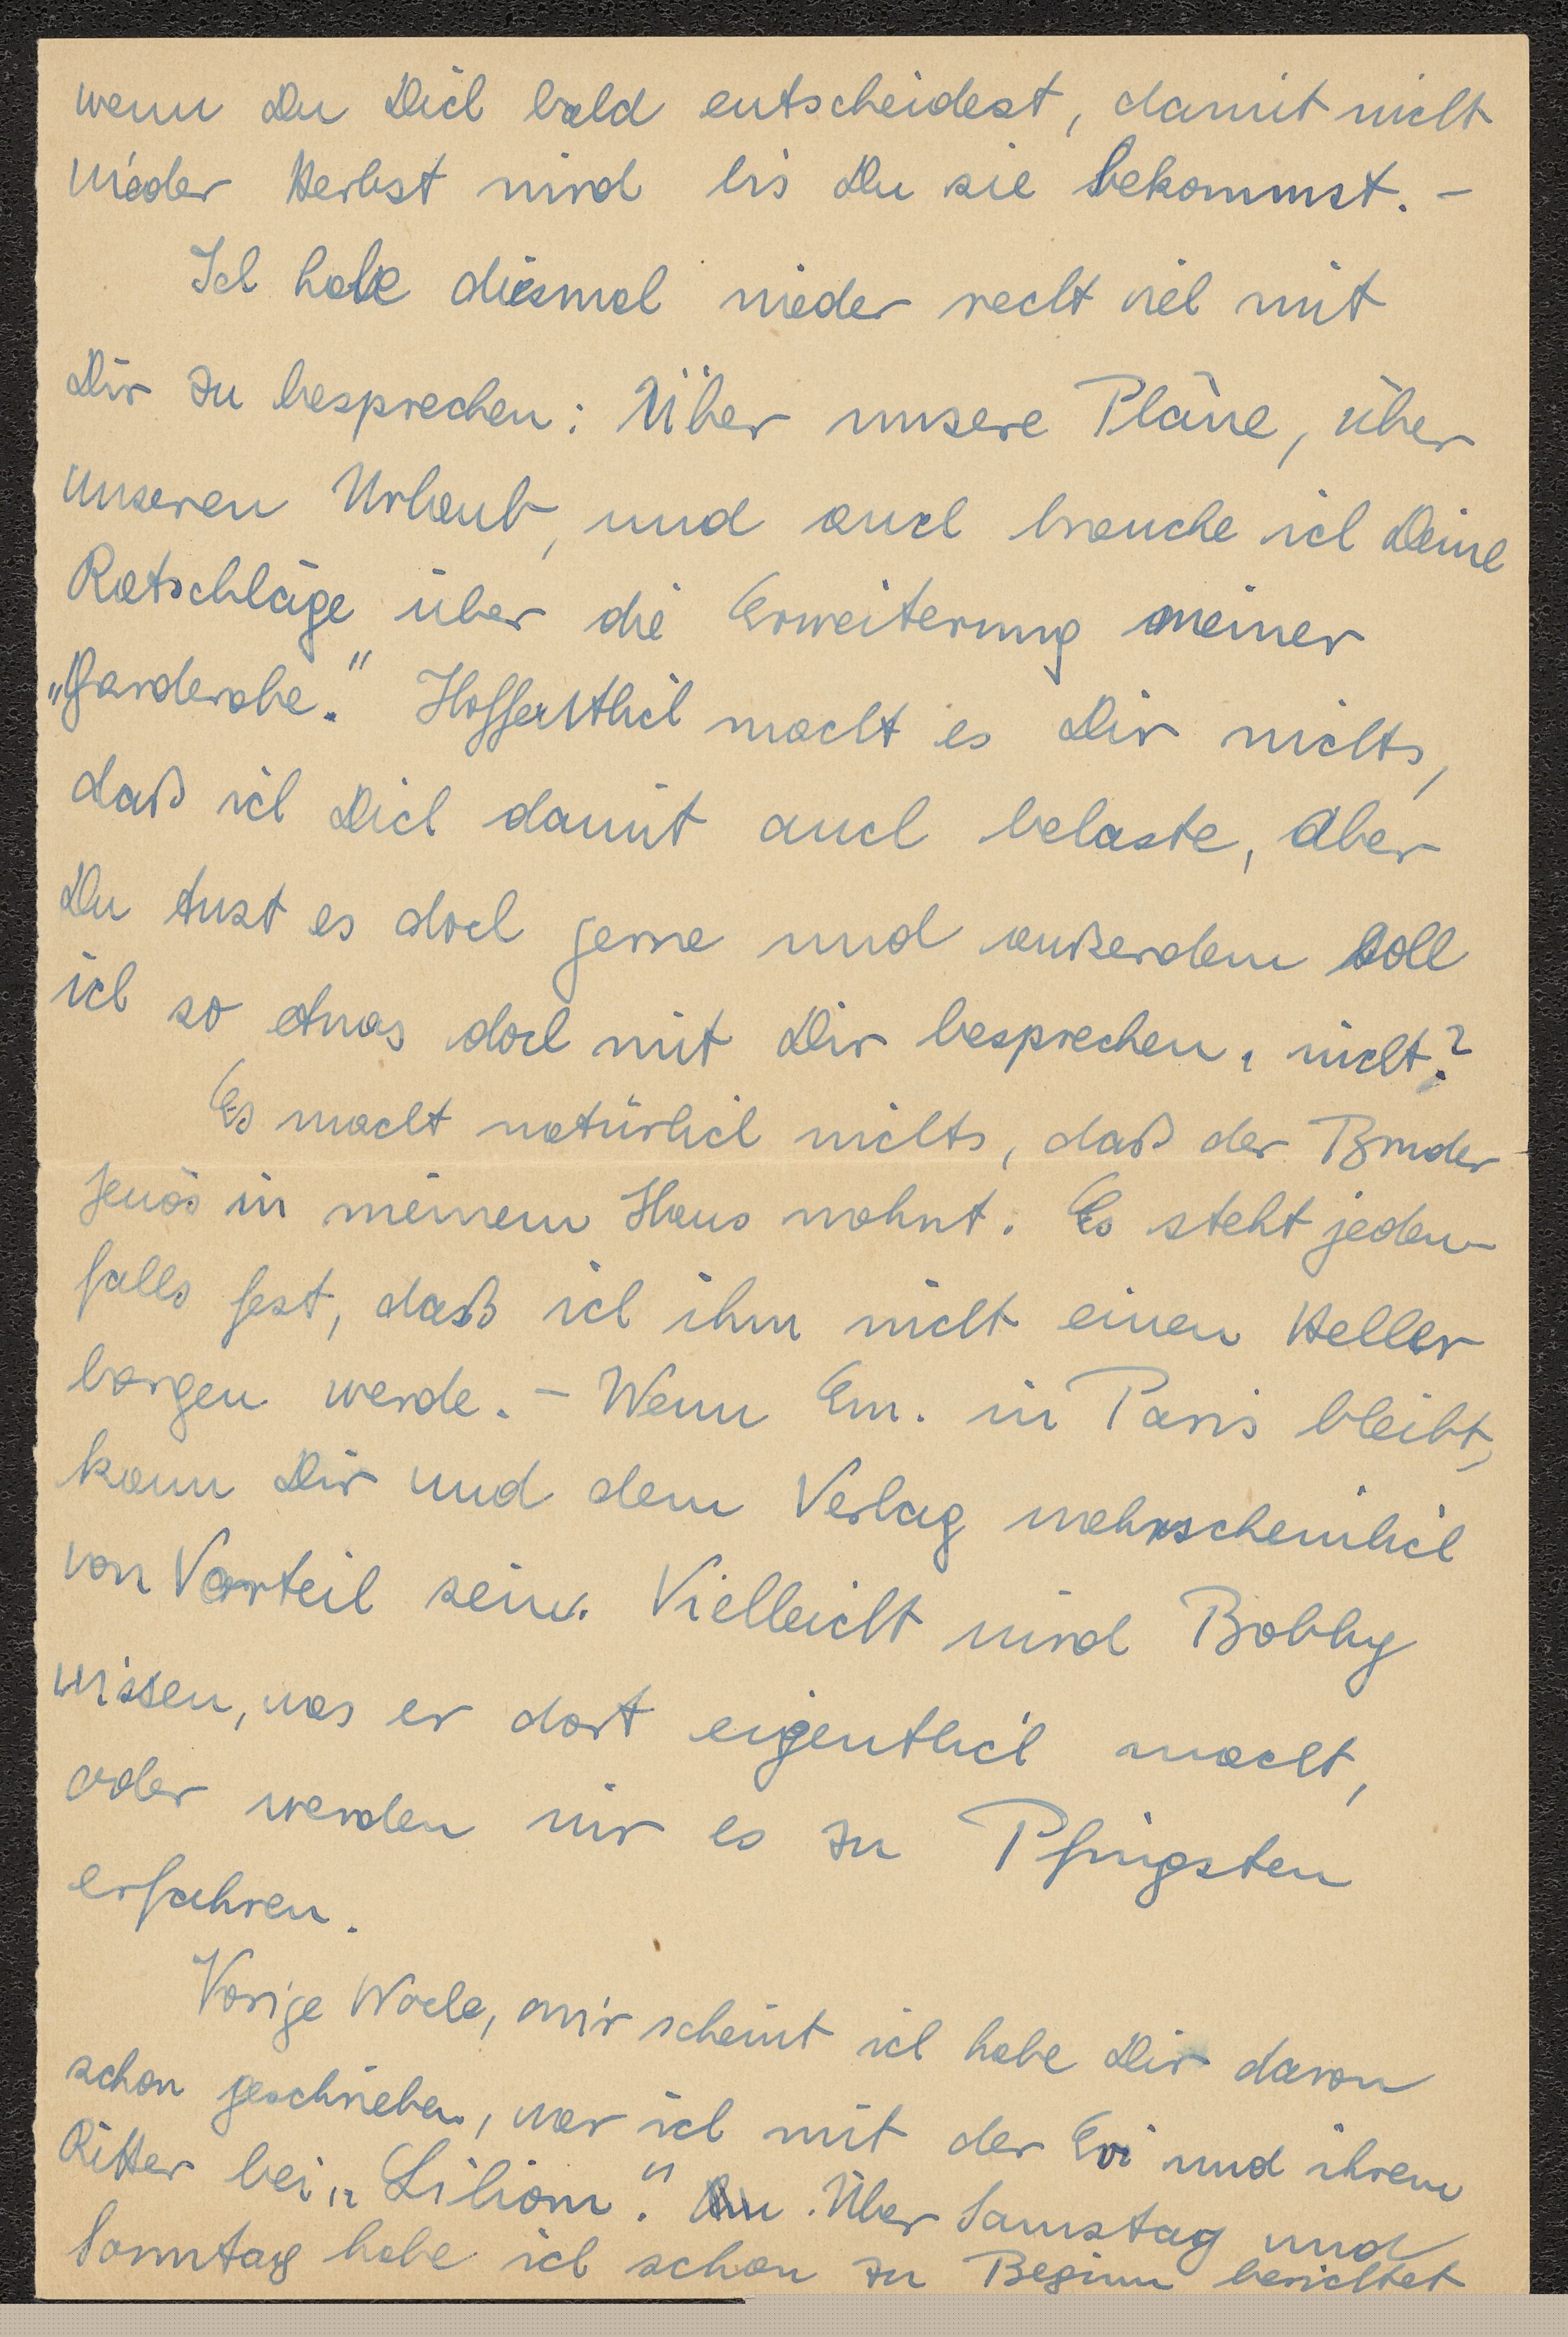 wenn Du Dich bald entscheidest, damit nicht
wieder Herbst wird bis Du sie bekommst. –
Ich habe diesmal wieder recht viel mit
Dir zu besprechen: Über unsere Pläne, über
unseren Urlaub, und auch brauche ich Deine
Ratschläge über die Erweiterung meiner
„Garderobe." Hoffentlich macht es Dir nichts,
daß ich Dich damit auch belaste, aber
Du tust es doch gerne und außerdem soll
ich so etwas doch mit Dir besprechen, nicht?
Es macht natürlich nichts, daß der Bruder
Jenös in meinem Haus wohnt. Es steht jeden-
falls fest, daß ich ihm nicht einen Heller
borgen werde. – Wenn Em. in Paris bleibt,
kann Dir und dem Verlag wahrscheinlich
von Vorteil sein. Vielleicht wird Bobby
wissen, was er dort eigentlich macht,
oder werden wir es zu Pfingsten
erfahren.
Vorige Woche, mir scheint ich habe Dir davon
schon geschrieben, war ich mit der Evi und ihrem
Ritter bei „Liliom." Über Samstag und
Sonntag habe ich schon zu Beginn berichtet